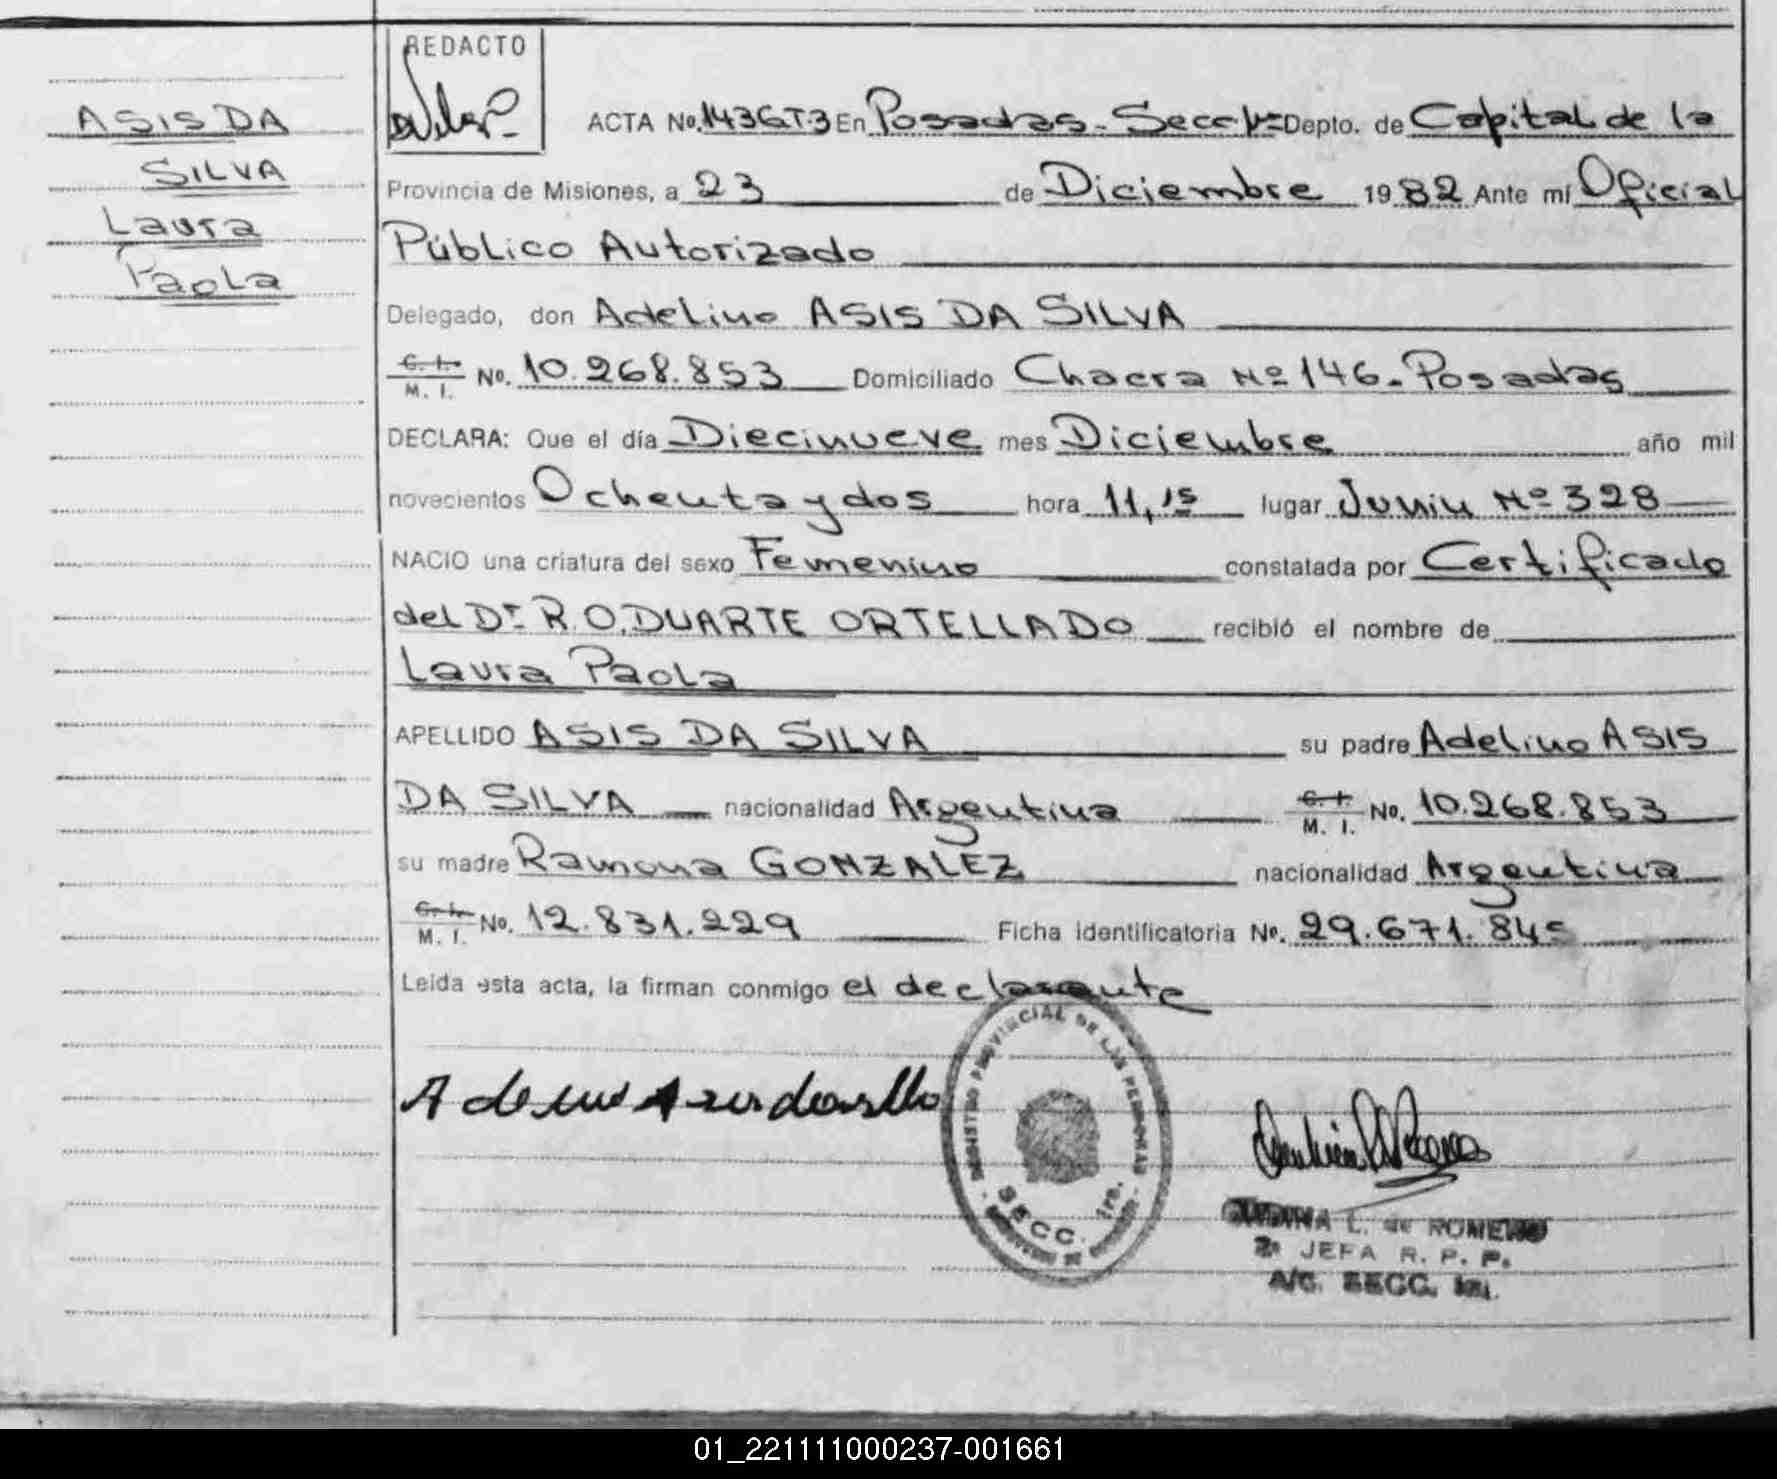 ASIS DA
SILVA
Laura
Paola
REDACTO
ACTA No. 1436T3 En Posadas - Secc 1ª Depto. de Capital de la
Provincia de Misiones, a 23 de Diciembre 1982 Ante mí Oficial
Público Autorizado
Delegado, don Adelino ASIS DA SILVA
C. I. M. I. No. 10.268.853 Domiciliado Chacra Nº 146 - Posadas
DECLARA: Que el día Diecinueve mes Diciembre año mil
novecientos Ochenta y dos hora 11,15 lugar Junin Nº 328
NACIO una criatura del sexo Femenino constatada por Certificado
del Dr R. O. DUARTE ORTELLADO recibió el nombre de
Laura Paola
APELLIDO ASIS DA SILVA su padre Adelino ASIS
DA SILVA nacionalidad Argentina C. I. M. I. No. 10.268.853
su madre Ramona GONZALEZ nacionalidad Argentina
C. I. M. I. No. 12.831.229 Ficha identificatoria No. 29.671.845
Leida esta acta, la firman conmigo el declarante
REGISTRO PROVINCIAL DE LAS PERSONAS
SECC. 1ra.
L. de ROMERO
2ª JEFA R. P. P.
A/C. SECC. 1ra.
01_221111000237-001661